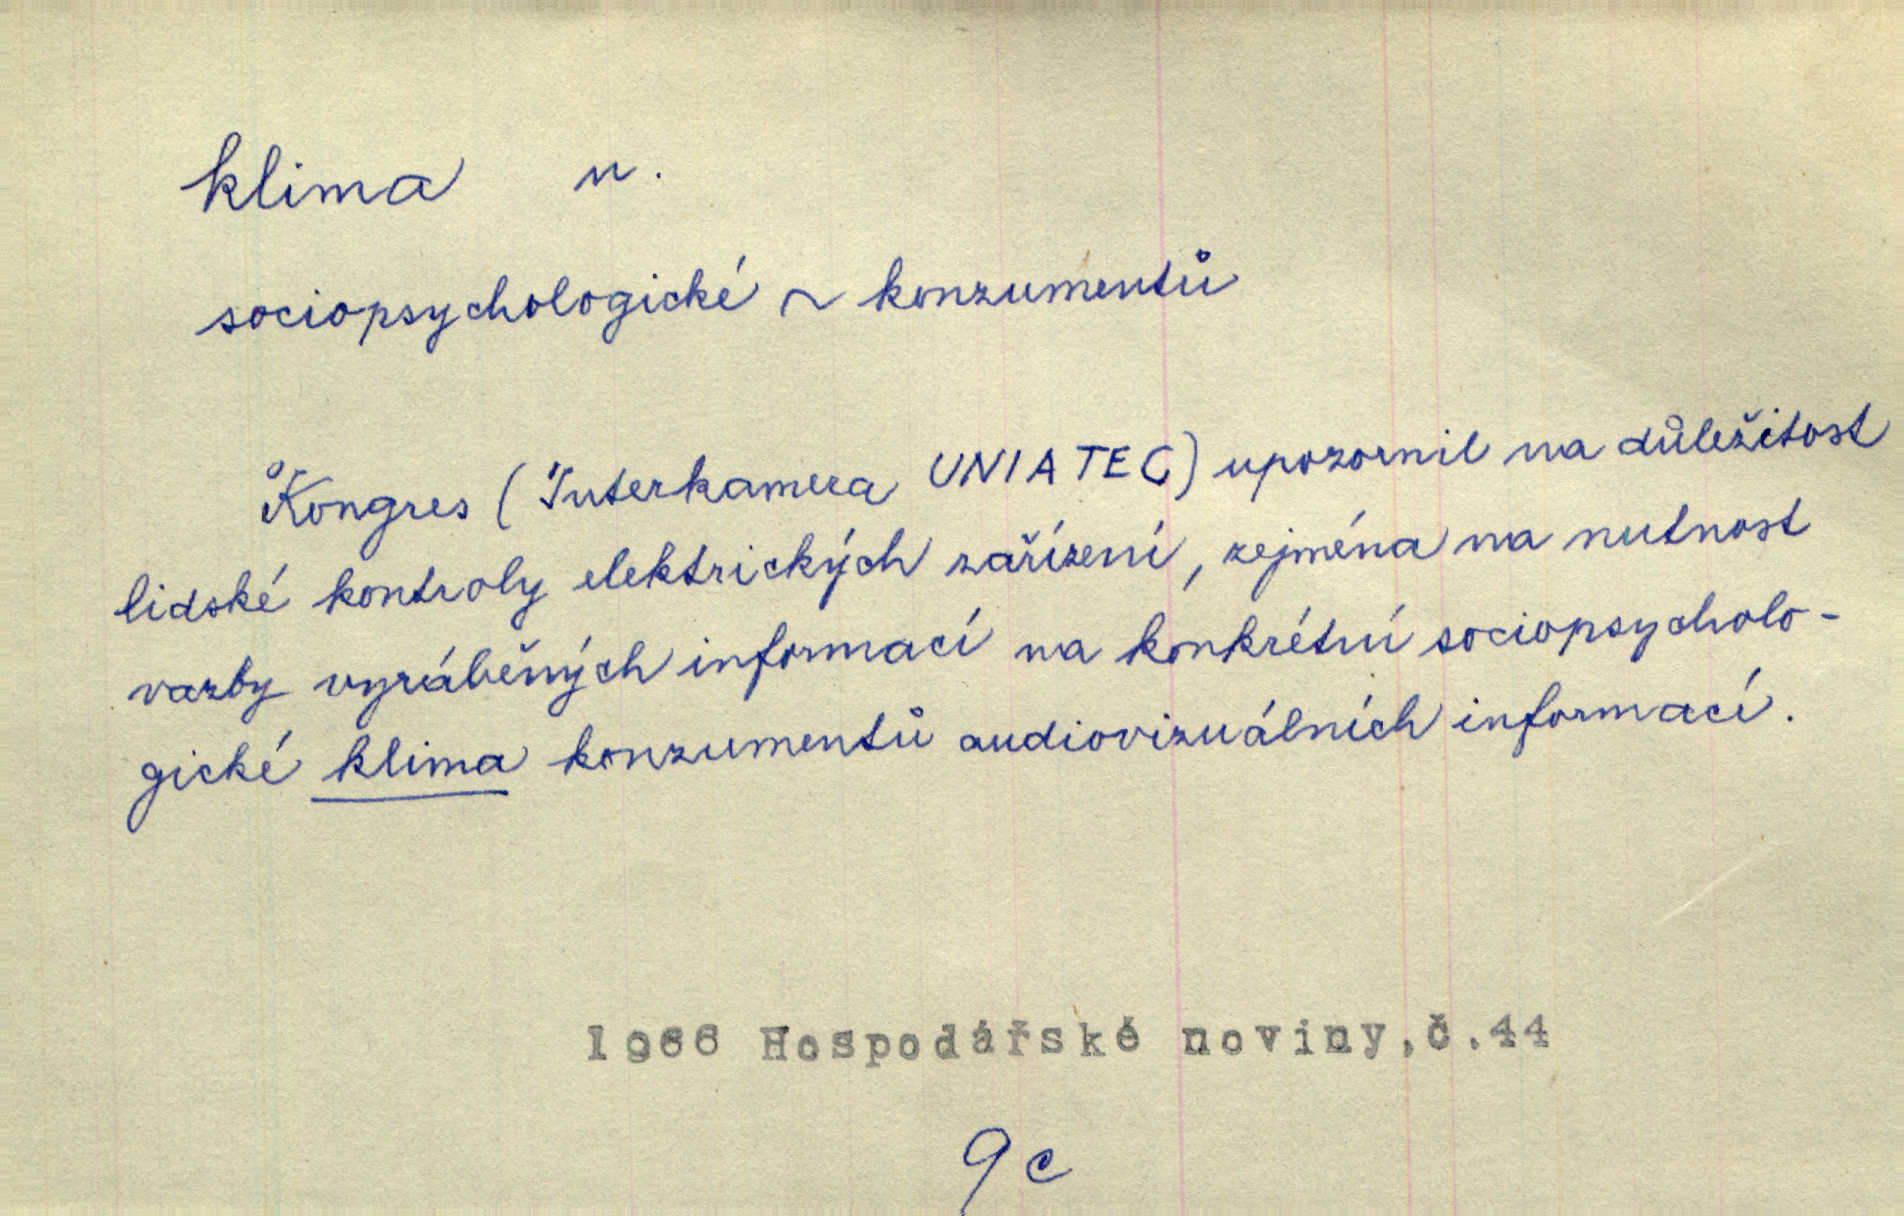 klima n.
sociopsychologické ~ konzumentů
Kongres (Interkamera UNIATEC) upozornil na důležitost
lidské kontroly elektrických zařízení, zejména na nutnost
vazby vyráběných informací na konkrétní sociopsycholo-
gické klima konzumentů audiovizuálních informací.
1966 Hospodářské noviny,č.44
9c